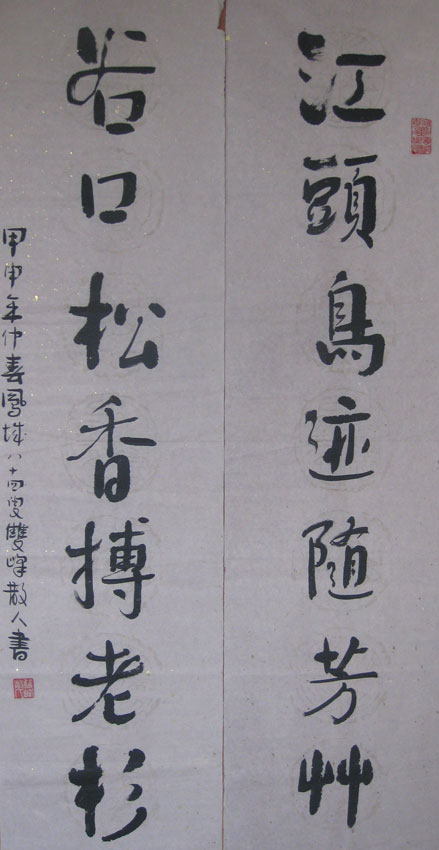 江頭鳥迹隨芳艸
谷口松香搏老杉
甲申年仲春鳳城八十四叟雙峰散人書